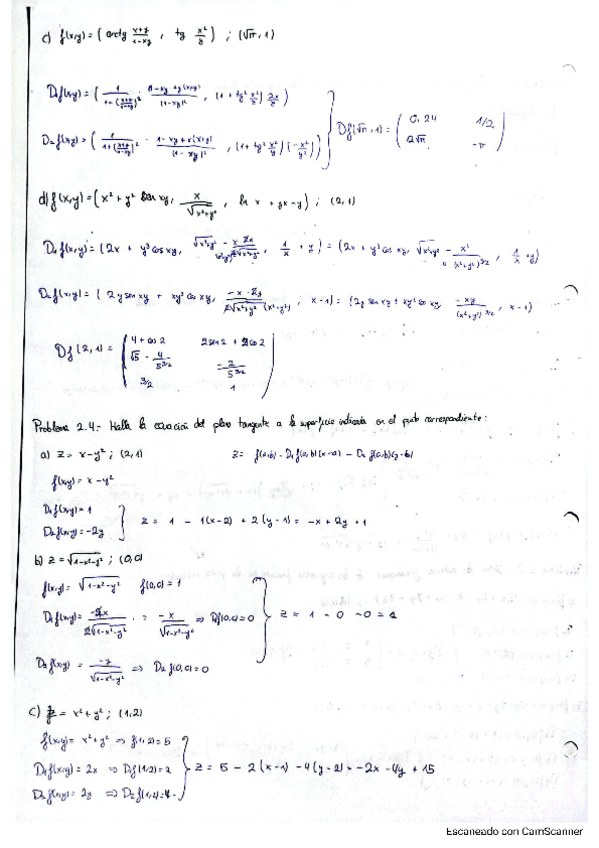 c) f(x,y) = ( arctg (x+y)/(1-xy) , tg x²/y ) ; (√π, 1)
D₁f(x,y) = ( 1/(1-((x+y)/(1-xy))²) · (1-xy+y(x+y))/(1-xy)² , (1 + tg² x²/y) 2x/y )
D₂f(x,y) = ( 1/(1+((x+y)/(1-xy))²) · (1-xy+x(x+y))/(1-xy)² , (1+tg² x²/y)(-x²/y²) ) } Df(√π, 1) = ( 0,24 1/2
2√π -π )
d) f(x,y) = ( x² + y² sen xy, x/√(x²+y²) , ln x + yx - y ) ; (2,1)
D₁f(x,y) = (2x + y³ cos xy, , 1/x + y) = (2x + y³ cos xy, √(x²+y²) - x²/(x²+y²)^3/2 , 1/x + y)
D₂f(x,y) = ( 2y sen xy + xy² cos xy, (-x·2y)/(2√(x²+y²) (x²+y²)) , x-1) = (2y sen xy + xy² cos xy, -xy/(x²+y²)^3/2 , x-1)
Df(2,1) = ( 4 + cos 2 2 sen 2 + 2 cos 2
√5 - 4/5^3/2 -2/5^3/2
3/2 1 )
Problema 2.4.- Halla la ecuación del plano tangente a la superficie indicada en el punto correspondiente:
a) z = x-y² ; (2,1) z = f(a,b) - D₁f(a,b)(x-a) - D₂f(a,b)(y-b)
f(x,y) = x - y²
D₁f(x,y) = 1
D₂f(x,y) = -2y } z = 1 - 1(x-2) + 2(y-1) = -x + 2y + 1
b) z = √(1-x²-y²) ; (0,0)
f(x,y) = √(1-x²-y²) f(0,0) = 1
D₁f(x,y) = -2x/(2√(1-x²-y²)) = -x/√(1-x²-y²) ⇒ Df(0,0) = 0 } z = 1 - 0 - 0 = 1
D₂f(x,y) = -y/√(1-x²-y²) ⇒ D₂f(0,0) = 0
c) z = x² + y² ; (1,2)
f(x,y) = x² + y² ⇒ f(1,2) = 5
D₁f(x,y) = 2x ⇒ D₁f(1,2) = 2 } z = 5 - 2(x-1) - 4(y-2) = -2x - 4y + 15
D₂f(x,y) = 2y ⇒ D₂f(1,2) = 4
Escaneado con CamScanner